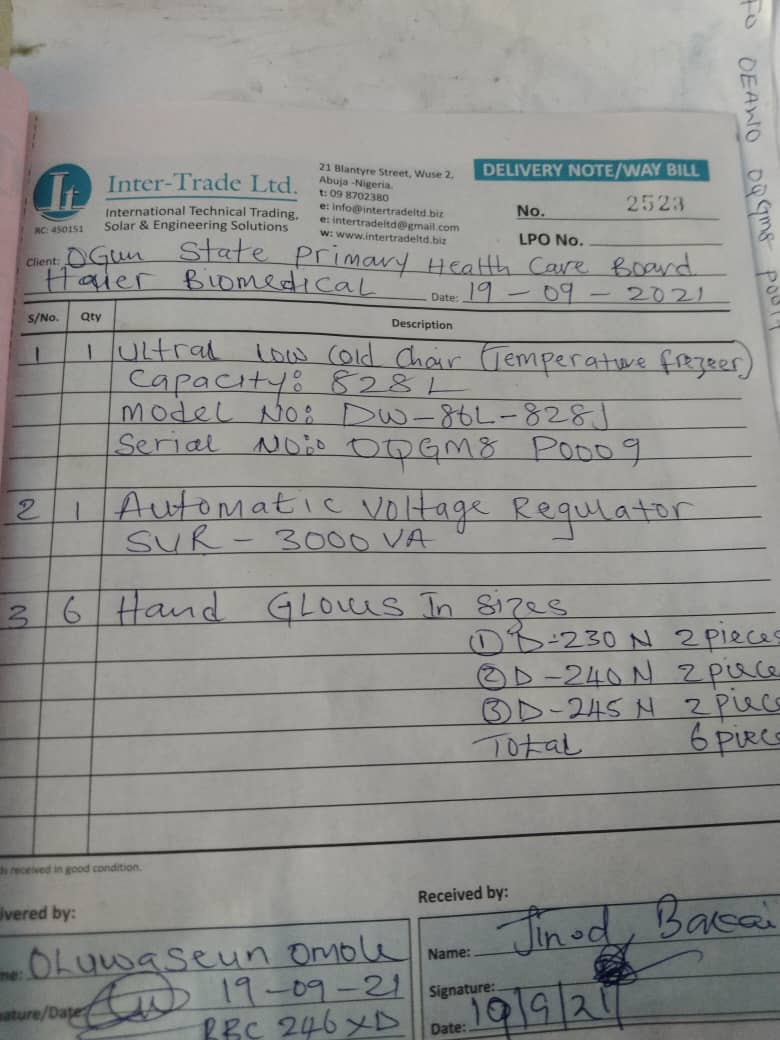 TO OEAWO OQGM8
It
RC: 450151
Inter-Trade Ltd.
International Technical Trading,
Solar & Engineering Solutions
21 Blantyre Street, Wuse 2,
Abuja -Nigeria.
t: 09 8702380
e: info@intertradeltd.biz
e: intertradeltd@gmail.com
w: www.intertradeltd.biz
DELIVERY NOTE/WAY BILL
No. 2523
LPO No.
Client: OGun State Primary Health Care Board
Haier Biomedical Date: 19-09-2021
S/No. Qty Description
1 1 Ultral low Cold Chair (Temperature frezeer)
Capacity: 828L
Model No: DW-86L-828J
Serial No: OQGM8 P0009
2 1 Automatic Voltage Regulator
SVR - 3000 VA
3 6 Hand Gloues In Sizes
① D-230 N 2 pieces
② D-240 N 2 piece
③ D-245 N 2 piec
Total 6 piec
received in good condition.
ivered by:
Received by:
me: Oluwaseun Omole
Name: Jinod
ature/Date 19-09-21
Signature:
BBC 246 XD
Date: 19/9/21